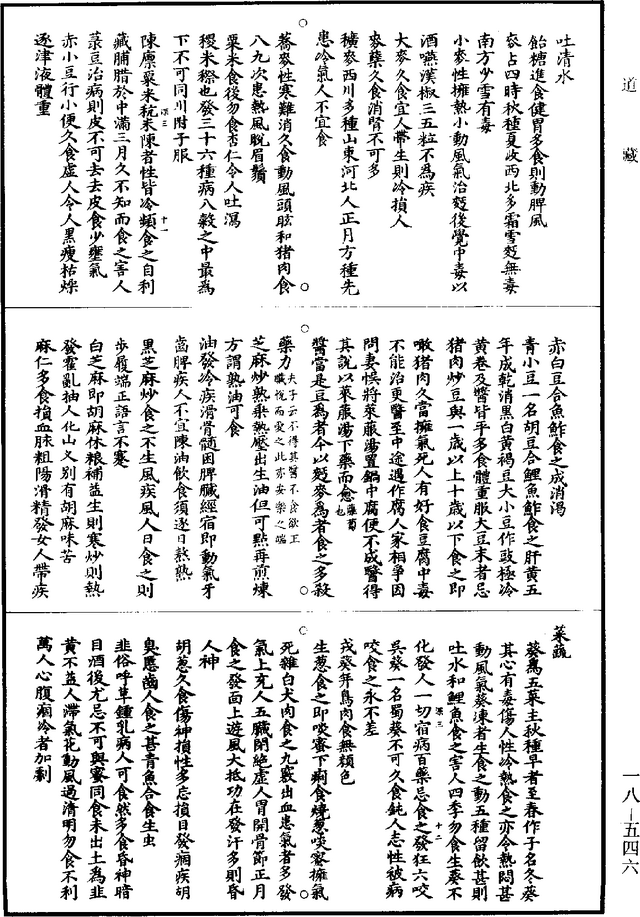 道藏
吐清水
飴糖進食健胃多食則動脾風
麥占四時秋種夏收西北多霜雪麪無毒
南方少雪有毒
小麥性擁熱小動風氣治麪後覺中毒以
酒嚥漢椒三五粒不為疾
大麥久食宜人帶生則冷損人
麥蘗久食消腎不可多
穬麥西川多種山東河北人正月方種先
患冷氣人不宜食
蕎麥性寒難消久食動風頭眩和猪肉食
八九次患熱風脫眉鬚
粟米食後勿食杏仁令人吐瀉
稷米穄也發三十六種病八穀之中最為
下不可同川附子服
陳廩粟米秔米陳者性皆冷頻食之自利
藏脯腊於中滿三月久不知而食之害人
菉豆治病則皮不可去去皮食少壅氣
赤小豆行小便久食虛人令人黑瘦枯燥
逐津液體重
赤白豆合魚鮓食之成消渴
青小豆一名胡豆合鯉魚鮓食之肝黃五
年成乾消黑白黃褐豆大小豆作豉極冷
黃卷及醬皆平多食體重服大豆末者忌
猪肉炒豆與一歲以上十歲以下食之即
噉猪肉久當擁氣死人有好食豆腐中毒
不能治更醫至中途遇作腐人家相爭因
問妻悞將萊菔湯置鍋中腐便不成醫得
其說以萊菔湯下藥而愈蘿蔔也
醬當是豆為者今以麪麥為者食之多殺
藥力夫子云不得其醬不食欲正臟悅而愛之此亦安樂之端
芝麻炒熟乘熱壓出生油但可點再煎煉
方謂熟油可食
油發冷疾滑骨髓困脾臟經宿即動氣牙
齒脾疾人不宜陳油飲食須逐日熬熟
黑芝麻炒食之不生風疾風人日食之則
步履端正語言不蹇
白芝麻即胡麻休粮補益生則寒炒則熱
發霍亂抽人化山义別有胡麻味苦
麻仁多食損血脉粗陽滑精發女人帶疾
菜蔬
葵為五菜主秋種早者至春作子名冬葵
其心有毒傷人性冷熱食之亦令熱悶甚
動風氣葵凍者生食之動五種留飲甚則
吐水和鯉魚食之害人四季勿食生葵不
化發人一切宿病百藥忌食之發狂六咬
吳葵一名蜀葵不可久食鈍人志性被病
咬食之永不差
戎葵并鳥肉食無顏色
生葱食之即啖蜜下痢食燒葱啖蜜擁氣
死雜白犬肉食之九竅出血患氣者多發
氣上充人五臟閉絕虛人胃開骨節正月
食之發面上遊風大抵功在發汗多則昏
人神
胡葱久食傷神損性多忘損目發痼疾胡
臭䘌齒人食之甚青魚合食生虫
韭俗呼草鍾乳病人可食然多食昏神暗
目酒後尤忌不可與蜜同食未出土為韭
黃不益人滯氣花動風過清明勿食不利
萬人心腹痼冷者加劇
一八-五四六